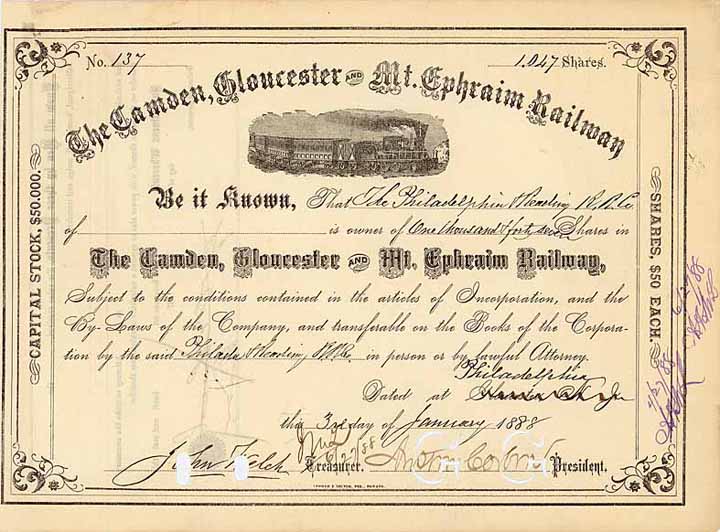 No. 137
1,047 Shares.
The Camden, Gloucester AND Mt. Ephraim Railway
CAPITAL STOCK, $50.000.
SHARES, $50 EACH.
Be it Known, That The Philadelphia & Reading R.R. Co.
of is owner of One thousand & forty seven Shares in
The Camden, Gloucester AND Mt. Ephraim Railway,
Subject to the conditions contained in the articles of Incorporation, and the
By-Laws of the Company, and transferable on the Books of the Corpora-
tion by the said Philada & Reading RR Co. in person or by lawful Attorney.
Philadelphia
Dated at
this 3rd day of January 1888
John Welch Treasurer. President.